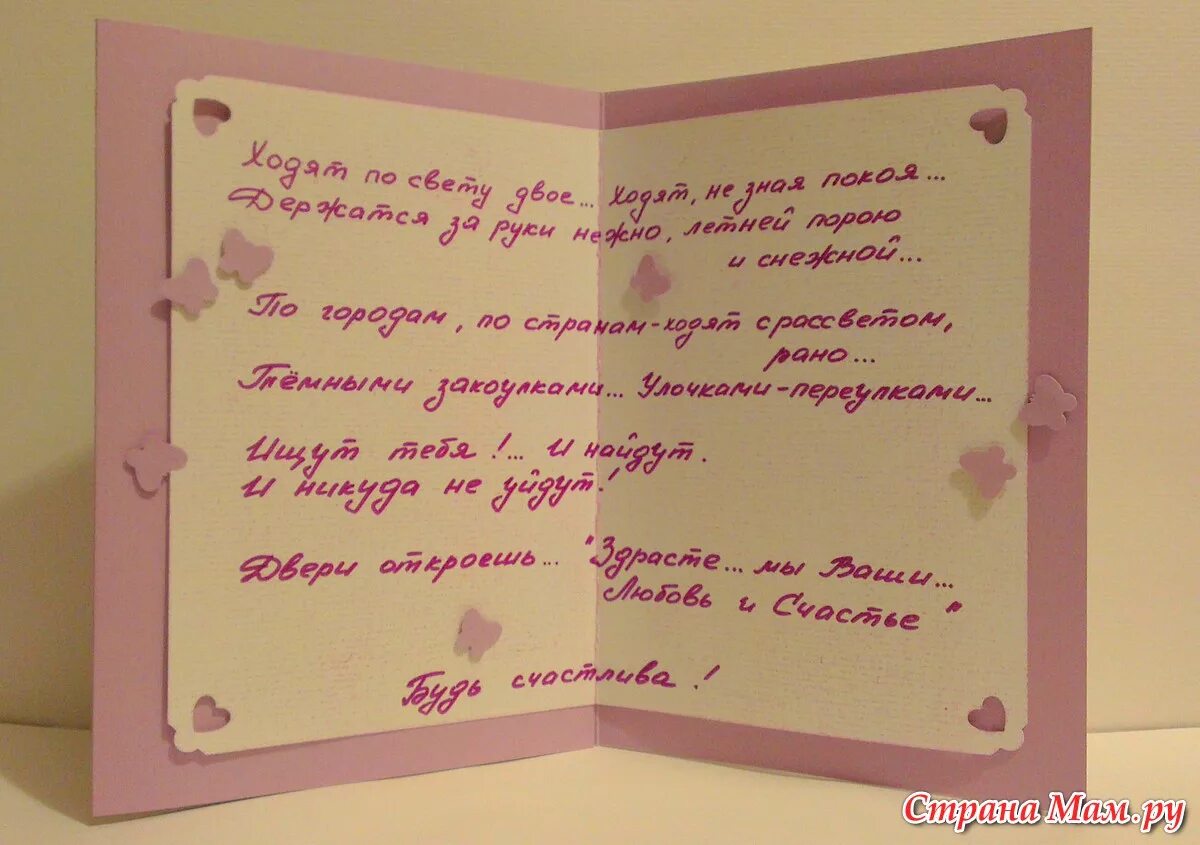 Ходят по свету двое... Ходят, не зная покоя...
Держатся за руки нежно, летней порою
и снежной...
По городам, по странам-ходят с рассветом,
рано...
Тёмными закоулками... Улочками-переулками...
Ищут тебя!... И найдут.
И никуда не уйдут!
Двери откроешь... "Здрасте... мы Ваши...
Любовь и Счастье"
Будь счастлива!
Страна Мам.ру